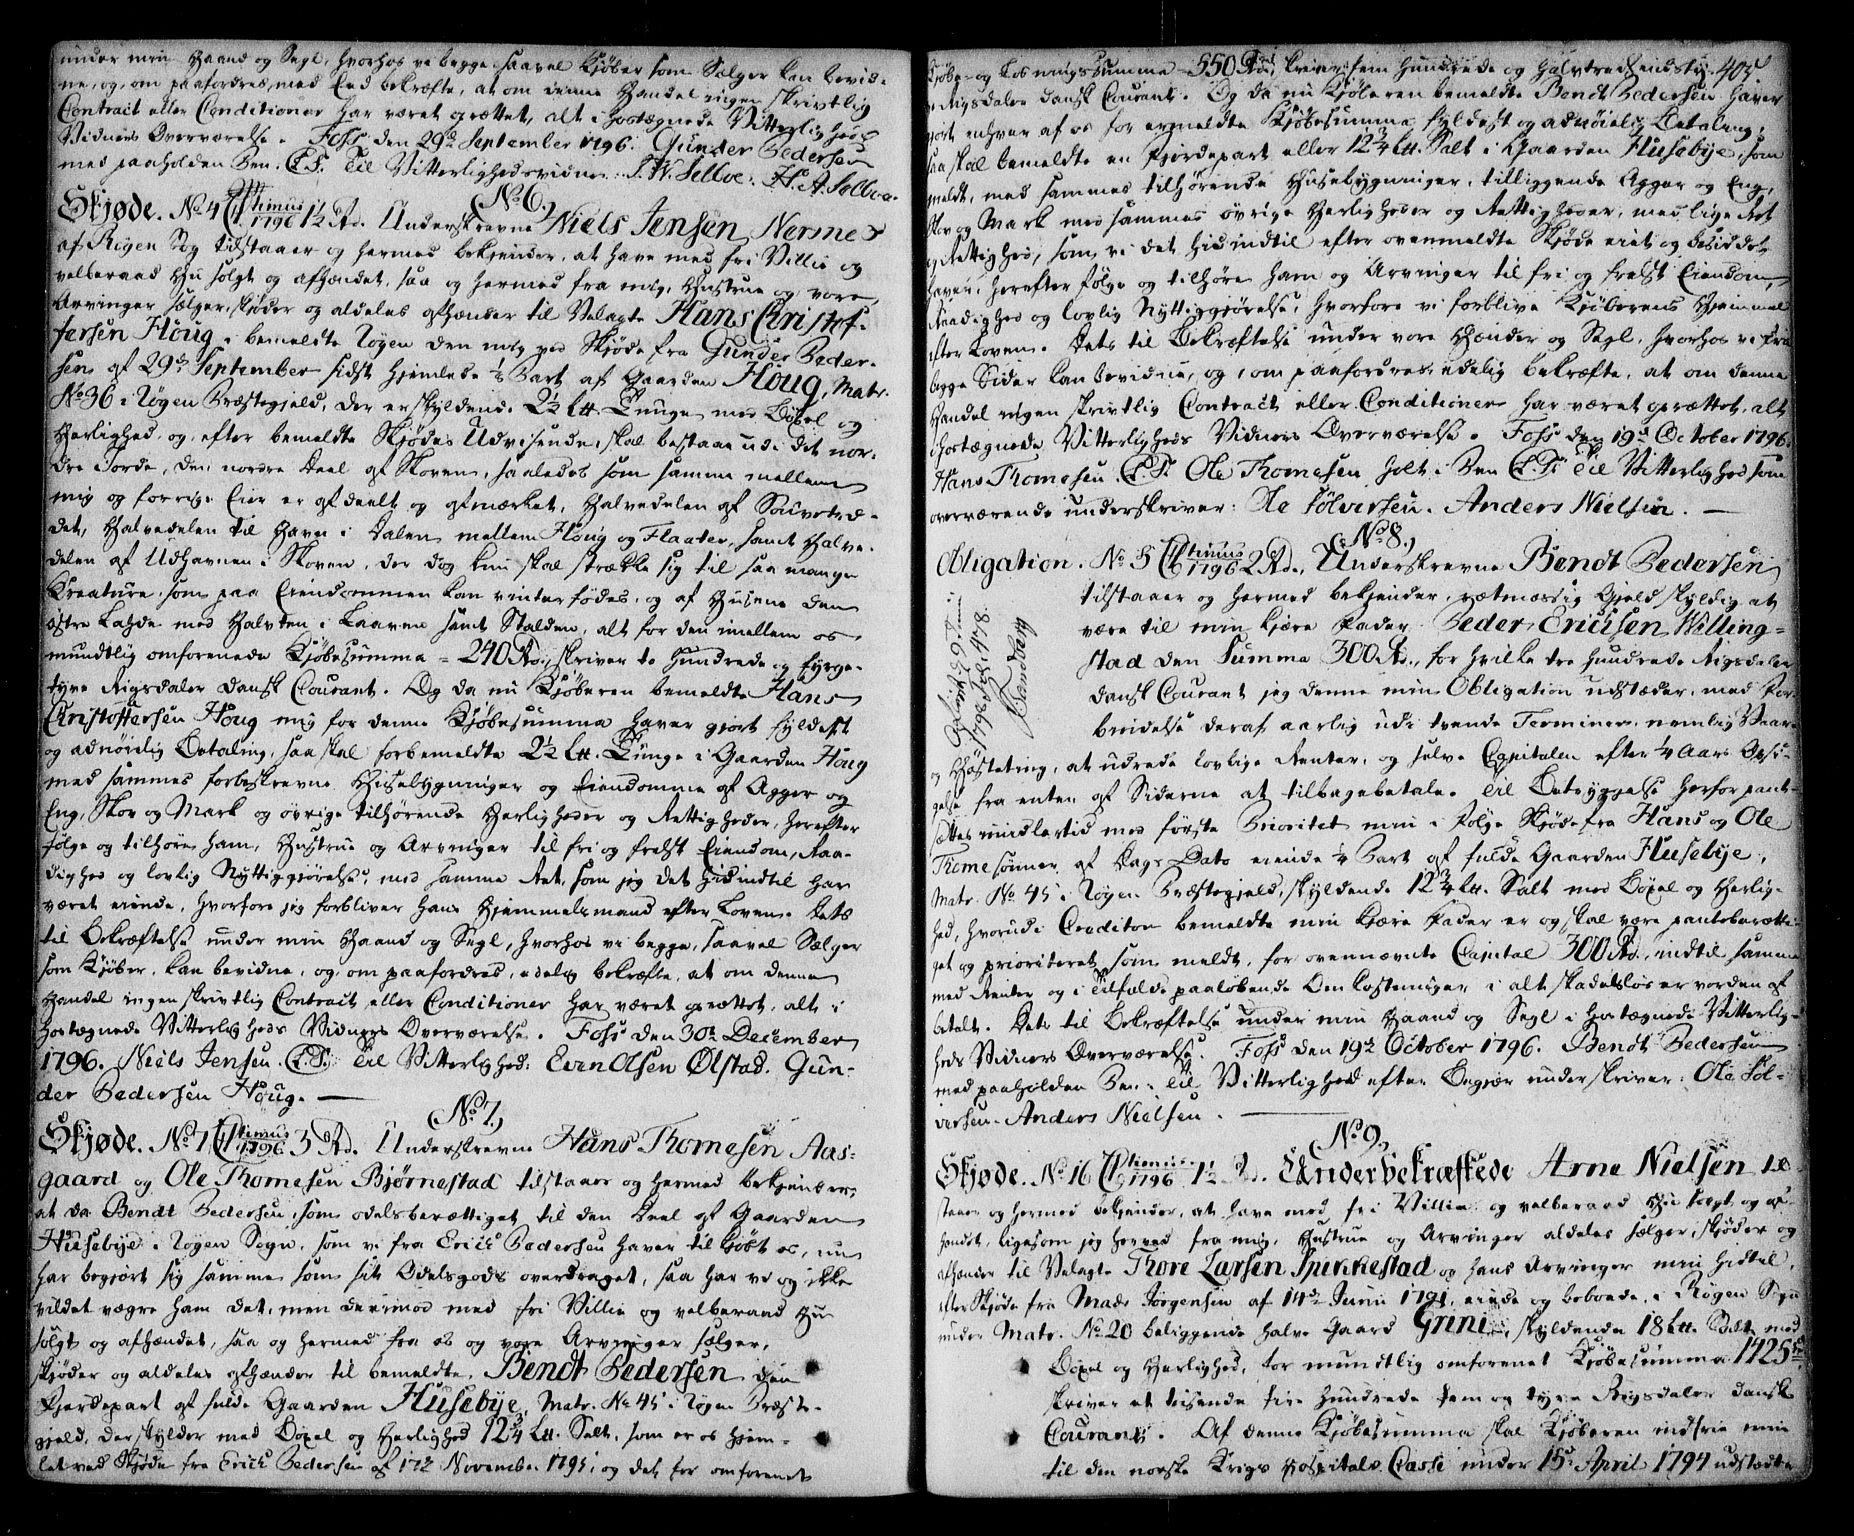 under min Haand og Segl, hvorhos vi begge saavel Kjøber som Sælger kan bevid-
ne, og, om paafordres, med Eed bekræfte, at om denne Handel ingen skrivtlig
Contract eller Conditioner har været oprættet, alt i hostegnede Vitterligheds
Vidners Overværelse. Foss den 29de September 1796. Gunder Pedersen
med paaholden Pen. L.S. Til Vitterlighedsvidner: J. W. Sellve. H. A. Sellve.
No 6.
Skjøde. No 4 1796 1½ Rd. Underskrevne Niels Jensen Nerme
af Rigen Røg tilstaaer og hermed bekjender, at have med fri Villie og
velberaad Hu solgt og afhændet, saa og hermed fra mig, Hustrue og vore
Arvinger sælger, skjøder og aldeles afhænder til Velagte Hans Christof-
fersen Houg i bemeldte Røgen den mig ved Skjøde fra Gunder Peder-
sen af 29de September sidst hjemlede ½ Part af Gaarden Houg, Matr.
No 36 i Røgen Præstegjeld, der er skyldende 2½ Ltt. Tunge med Bøxel og
Herlighed, og efter bemeldte Skjødes Udvisende, skal bestaae udi det nor-
dre Jorde, den nordre Deel af Skoven, saaledes som samme mellem
mig og forrige Eier er afdeelt og afmærket, Halvedelen af
det, Halvedelen til Havn i Dalen mellem Houg og Flaater, samt Halve-
delen af Udhavnen i Skoven, der dog kun skal strække sig til saa mange
Kreature, som paa Eiendommen kan vinterfødes, og af Husene den
østre Lahde med Halvten i Laaven samt Stalden, alt for den imellem os
mundtlig omforenede Kjøbesumma = 240 Rd., skriver to Hundrede og fyrge-
tyve Rigsdaler Dansk Courant. Og da nu Kjøberen bemeldte Hans
Christoffersen Houg mig for denne Kjøbesumma haver gjort fyldest
og adnøielig Betaling, saa skal forbemeldte 2½ Ltt. Tunge i Gaarden Houg
med sammes forbeskrevne Husebygninger og Eiendomme af Agger og
Eng, Skov og Mark og øvrige tilhørende Herligheder og Rettigheder, herefter
følge og tilhøre ham, Hustrue og Arvinger til fri og frelst Eiendom, Raa-
dighed og lovlig Nyttiggjørelse, med samme Ret, som jeg det hidindtil har
været eiende, hvorfore jeg forbliver hans Hjemmelsmand efter Loven. Dets
til Bekræftelse under min Haand og Segl, hvorhos vi begge, saavel Sælger
som Kjøber, kan bevidne, og, om paafordres, edelig bekræfte, at om denne
Handel ingen skrivtlig Contract eller Conditioner har været oprættet, alt i
hostegnede Vitterligheds Vidners Overværelse. Foss den 30te December
1796. Niels Jensen. L.S. Til Vitterlighed: Even Olsen Ølstad. Gun-
der Pedersen Houg.
No 7.
Skjøde. No 7 1796 3 Rd. Underskrevne Hans Thomesen Aas-
gaard og Ole Thomesen Bjørnestad tilstaaer og hermed bekjender,
at da Bendt Pedersen, som odelsberættiget til den Deel af Gaarden
Husebÿe i Røgen Sogn, som vi fra Erich Pedersen haver tilkjøbt os, nu
har begjert sig samme som sit Odelsgods overdraget, saa har vi og ikke
vildet vægre ham det, men derimod med fri Villie og velberaad Hu
solgt og afhændet, saa og hermed fra os og vore Arvinger sælger,
skjøder og aldeles afhænder til bemeldte Bendt Pedersen den
Fjerdepart af fulde Gaarden Husebÿe, Matr. No 45 i Røgen Præste-
gjeld, der skylder med Bøxel og Herlighed 12¾ Ltt. Salt, som er os hjem-
let ved Skjøde fra Erich Pedersen af 17de November 1795, og det for omforenet
Kjøbe- og Losningssumma 550 Rd., skriver fem Hundrede og halvtredsindsty- 405.
ve Rigsdaler dansk Courant. Og da nu Kjøberen bemeldte Bendt Pedersen haver
gjort enhver af os for ermeldte Kjøbesumma fyldest og adnøielig Betaling,
saa skal bemeldte en Fjerdepart eller 12¾ Ltt. Salt i Gaarden Husebÿe, som
meldt, med sammes tilhørende Husebygninger, tilliggende Agger og Eng,
Skov og Mark med sammes øvrige Herligheder og Rettigheder, med lige Ret
og Rettighed, som vi det hidindtil efter ovenmeldte Skjøde eiet og besiddet
haver, herefter følge og tilhøre ham og Arvinger til fri og frelst Eiendom,
Raadighed og lovlig Nyttiggjørelse, hvorfore vi forblive Kjøberens Hjemmel
efter Loven. Dets til Bekræftelse under vore Hænder og Segl, hvorhos vi fra
begge Sider kan bevidne, og, om paafordres, edelig bekræfte, at om denne
Handel ingen skrivtlig Contract eller Conditioner har været oprættet, alt
i hostegnede Vitterligheds Vidners Overværelse. Foss den 19de October 1796.
Hans Thomesen. L.S. Ole Thomesen holt i Pen L.S. Til Vitterlighed som
overværende underskriver: Ole Sølversen. Anders Nielsen.
No 8.
Obligation. No 8 1796 2 Rd. Underskrevne Bendt Pedersen
tilstaaer og hermed bekjender, rætmæssig Gjeld skyldig at
være til min kjære Fader Peder Erichsen Willing-
stad den Summa 300 Rd., for hvilke tre Hundrede Rigsdaler
dansk Courant jeg denne min Obligation udstæder, med For-
bindelse deraf aarlig udi tvende Terminer, nemlig Vaar-
og Høsteting, at udrede lovlige Renter, og selve Capitalen efter ¼ Aars Opsi-
gelse fra enten af Siderne at tilbagebetale. Til Betryggelse herfor pant-
sættes imidlertid med første Prioritet min i Følge Skjøde fra Hans og Ole
Thomesønner af Dags Dato eiende ¼ Part af fulde Gaarden Husebÿe,
Matr. No 45 i Røgen Præstegjeld, skyldende 12¾ Ltt. Salt med Bøxel og Herlig-
hed, hvorudi Creditor bemeldte min kjære Fader er og skal være panteberætti-
get og prioriteret, som meldt, for ovennævnte Capital 300 Rd., indtil samme
med Renter og i Tilfælde paaløbende Omkostninger i alt skadesløs er vorden af-
betalt. Dets til Bekræftelse under min Haand og Segl i hostegnede Vitterlig-
heds Vidners Overværelse. Foss den 19de October 1796. Bendt Pedersen
med paaholden Pen. Til Vitterlighed efter Begjær underskriver: Ole Søl-
versen. Anders Nielsen.
1798 Fol. 478.
No 9.
Skjøde. No 16 1796 1½ Rd. Underbekræftede Arne Nielsen til-
staaer og hermed bekjender, at have med fri Villie og velberaad Hu solgt og af-
hændet, ligesom jeg herved fra mig, Hustrue og Arvinger aldeles sælger, skjøder og
afhænder til Velagte Thore Larsen Spirkestad og hans Arvinger min hidtil,
efter Skjøde fra Mads Jørgensen af 14de Junii 1791, eiende og beboende, i Røgen Sogn
under Matr. No 20 beliggende halve Gaard Grini, skyldende 18 Ltt. Salt med
Bøxel og Herlighed, for mundtlig omforenet Kjøbesumma 1425 Rd.
skriver et tusende fire Hundrede fem og tyve Rigsdaler dansk
Courant. Af denne Kjøbesumma skal Kjøberen indfrie min
til den norske Krigs Hospitals Casse under 15de April 1794 udstædte